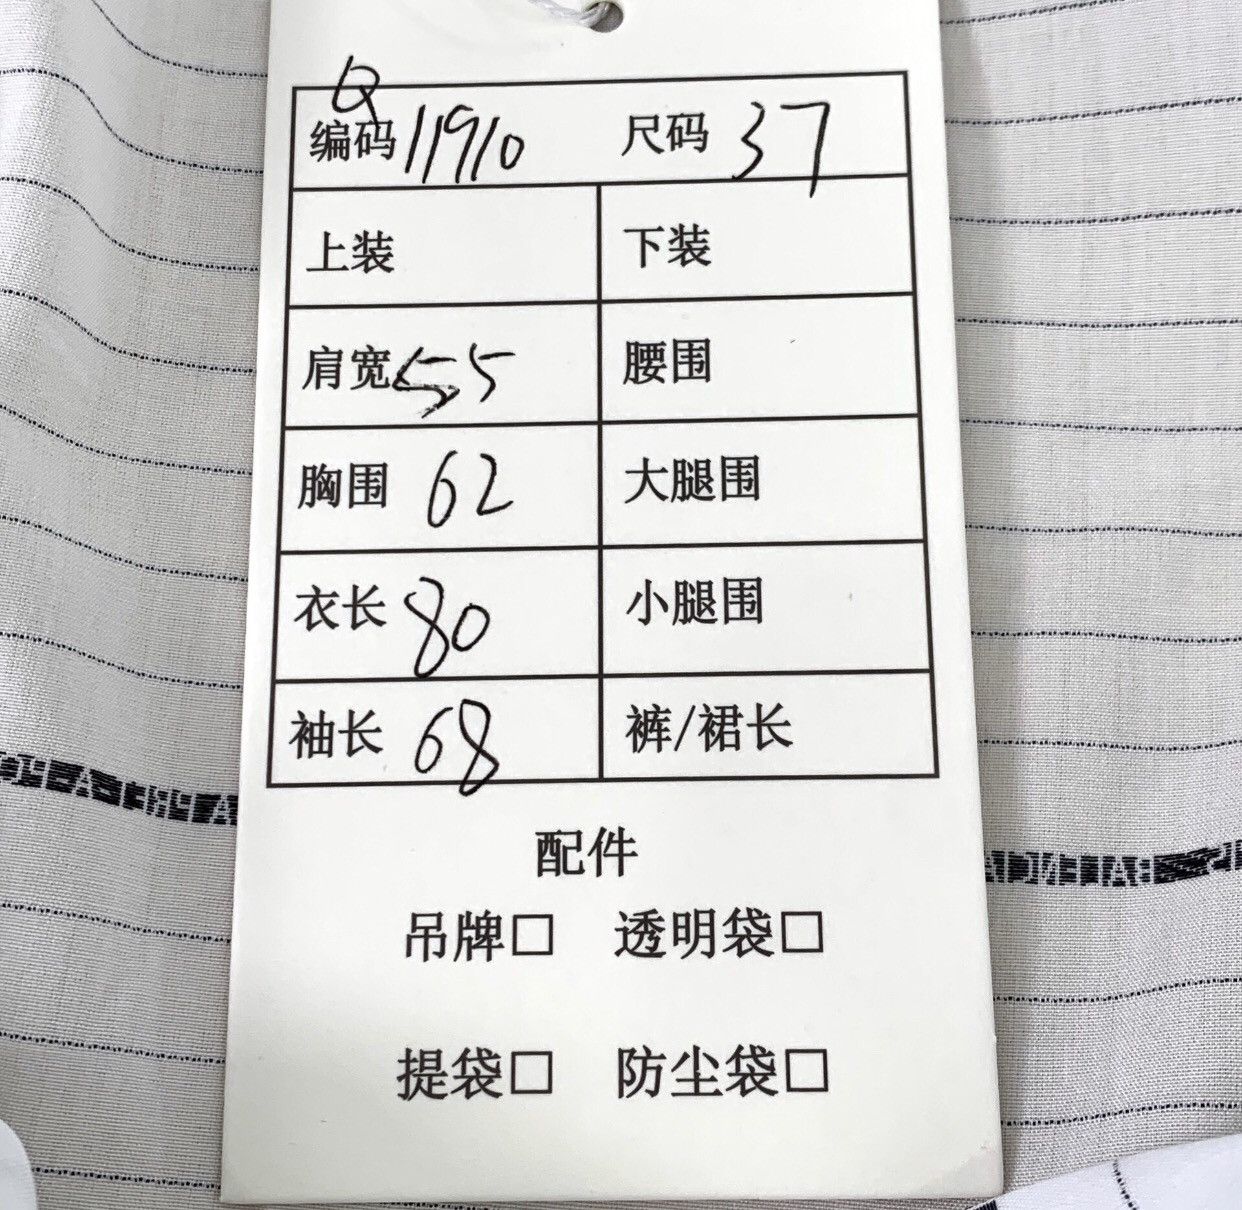 Q
编码 11910 尺码 37
上装 下装
肩宽 55 腰围
胸围 62 大腿围
衣长 80 小腿围
袖长 68 裤/裙长
配件
吊牌□ 透明袋□
提袋□ 防尘袋□